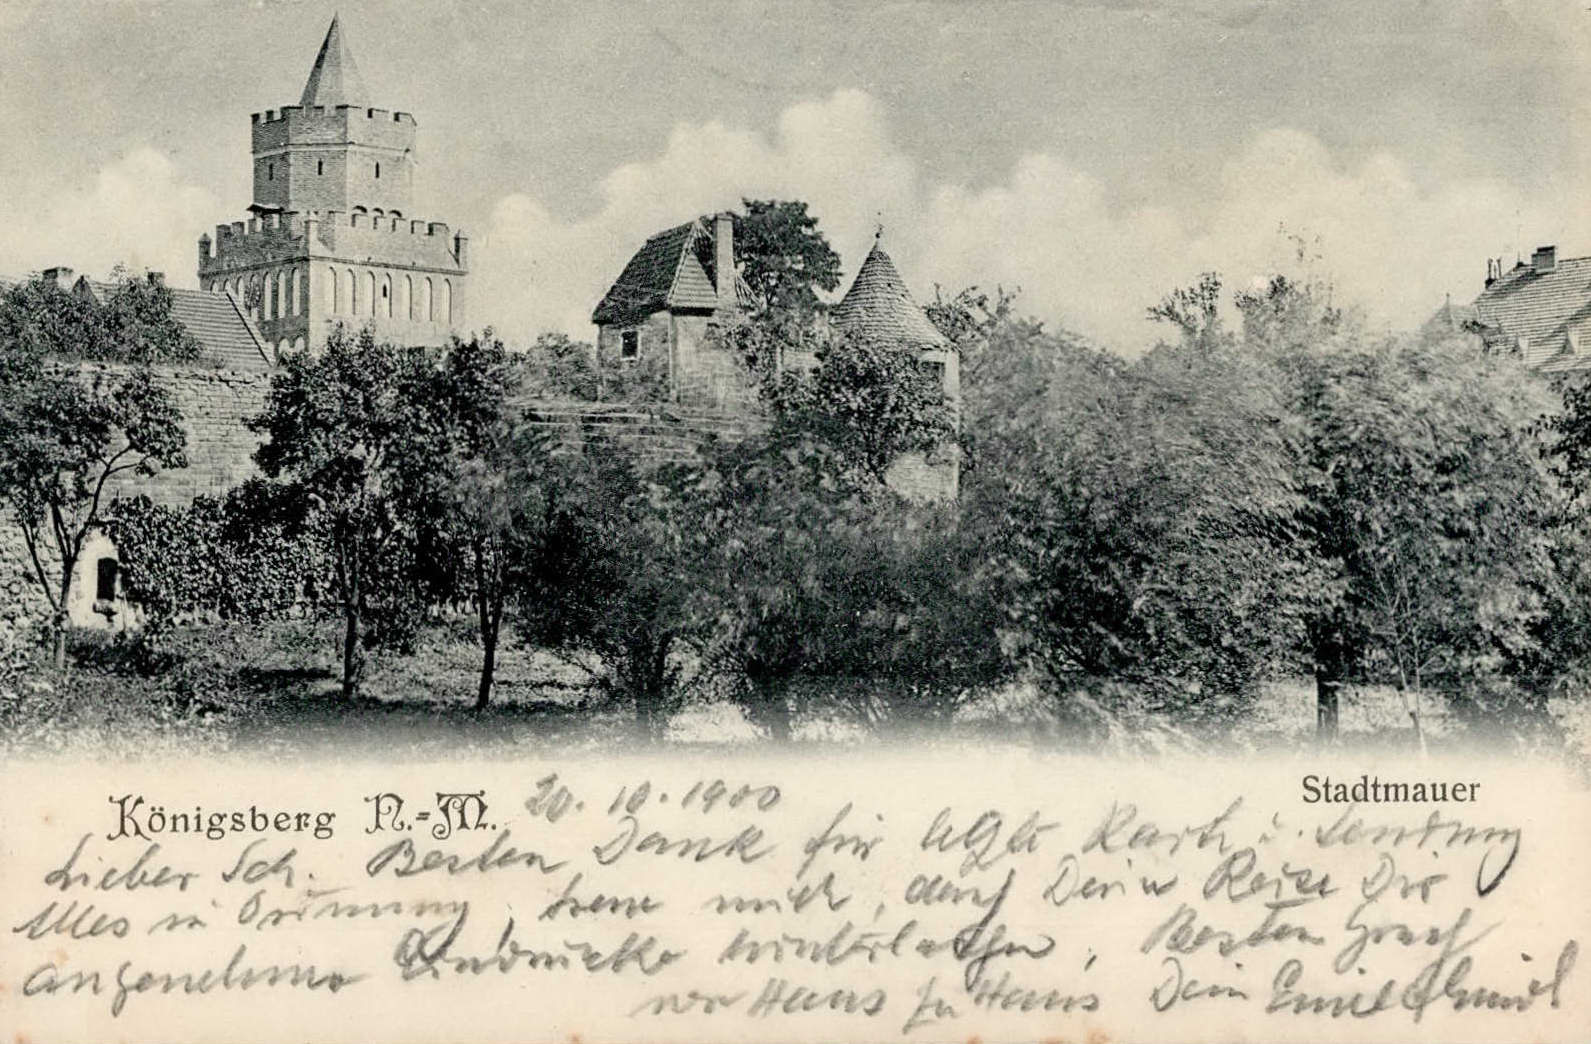 Königsberg N.-M. 20.10.1900
Stadtmauer
Lieber Sch. Besten Dank für letzte Karte u. Sendung
Alles in Ordnung, freue mich, dass Deine Reise Dir
angenehme Eindrücke hinterlassen, Besten Gruss
von Haus zu Haus Dein Emil